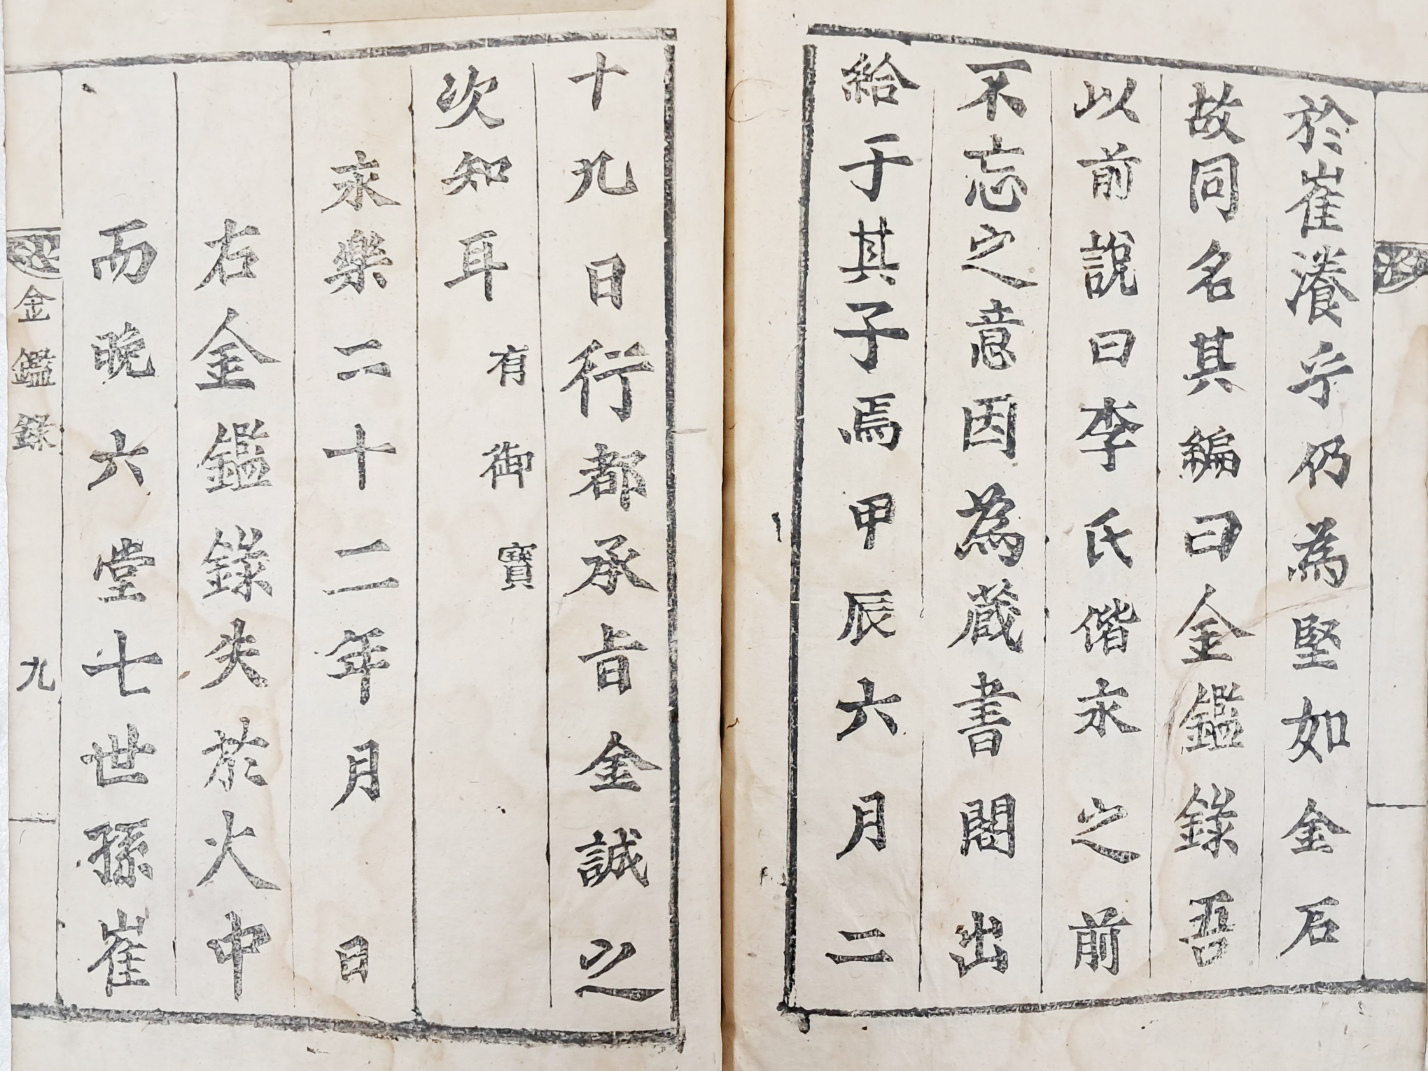 於崔濩乎仍為堅如金石
故同名其編曰金鑑錄吾
以前說曰李氏偕永之前
不忘之意因為蔵書閣出
給于其子焉甲辰六月二
十九日行都承旨金誠之
次知耳
有御寶
永樂二十二年月日
右金鑑錄失於火中
而晩六堂七世孫崔
金鑑錄
九